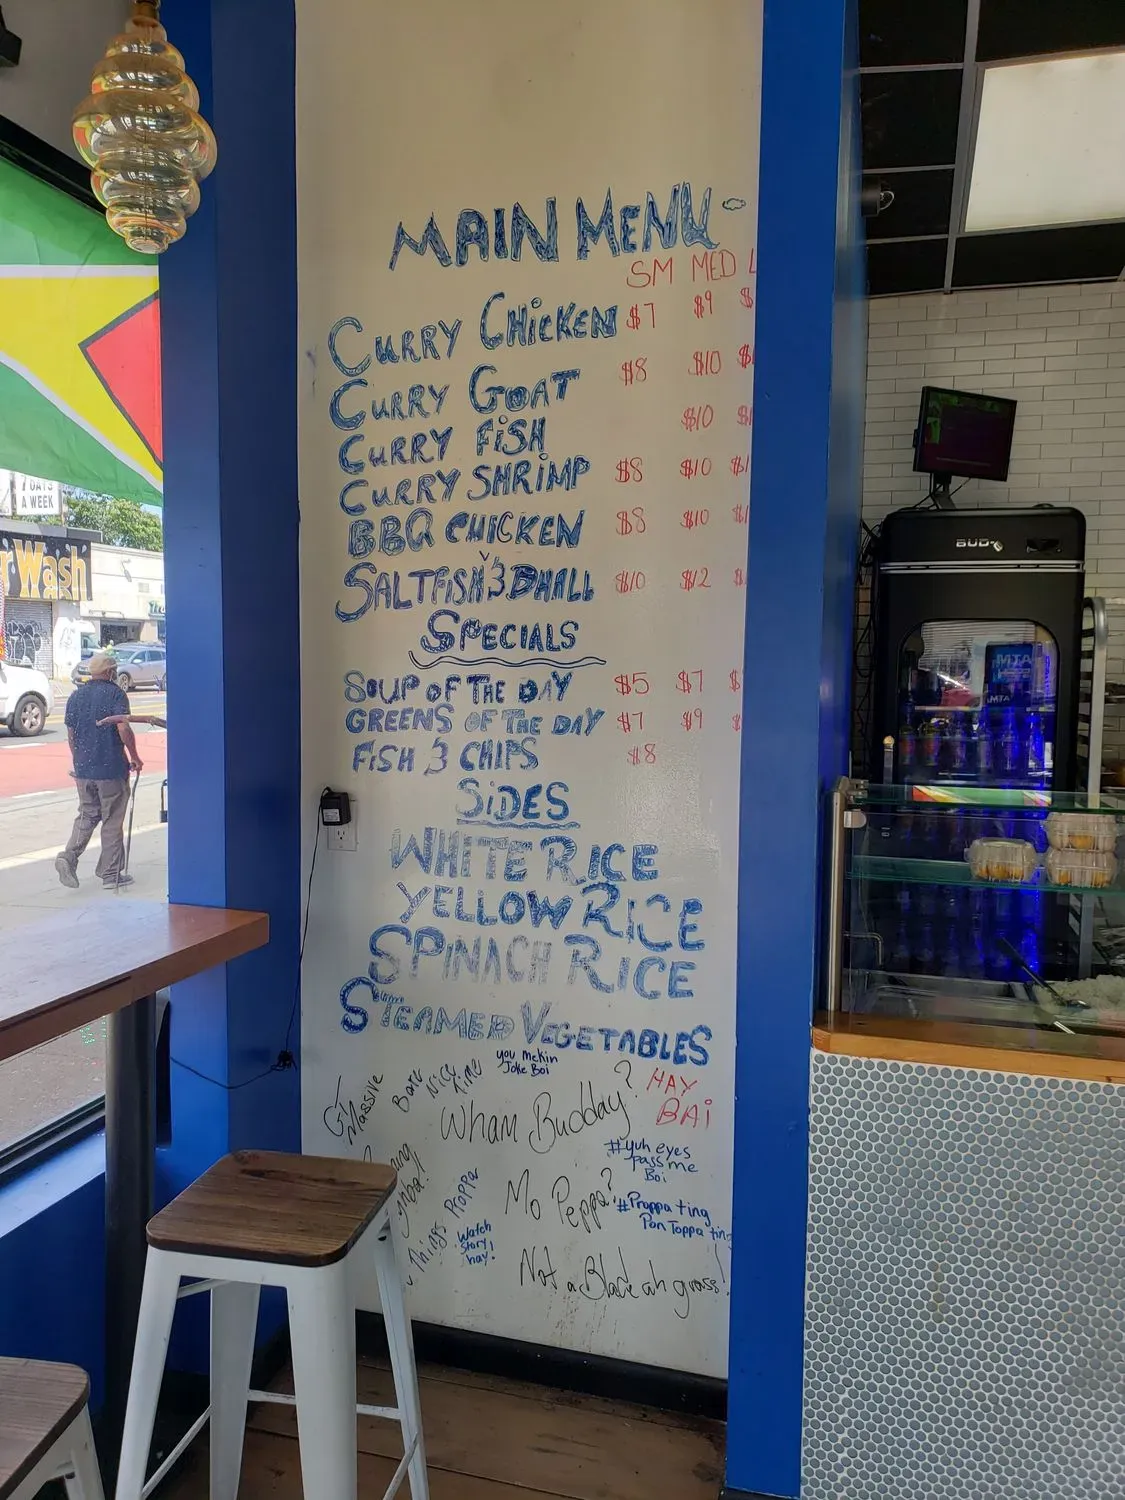 MAIN MENU
SM MED L
CURRY CHICKEN $7 $9 $
CURRY GOAT $8 $10 $
CURRY FISH $10 $
CURRY SHRIMP $8 $10 $1
BBQ CHICKEN $8 $10 $1
SALTFISH & DHALL $10 $12 $
SPECIALS
SOUP OF THE DAY $5 $7 $
GREENS OF THE DAY $7 $9 $
FISH & CHIPS $8
SIDES
WHITE RICE
YELLOW RICE
SPINACH RICE
STEAMED VEGETABLES
GT
Massive
Nice
Time
you mekin
Joke Boi
Wham Budday?
HAY
BAI
#yuh eyes
pass me
Boi
Mo Peppa?
#Proppa ting
Pon Toppa ting
Things Proppa
Watch
Story
hay!
Not a Blade ah grass!
DAYS
A WEEK
Wash
BUD
ATM